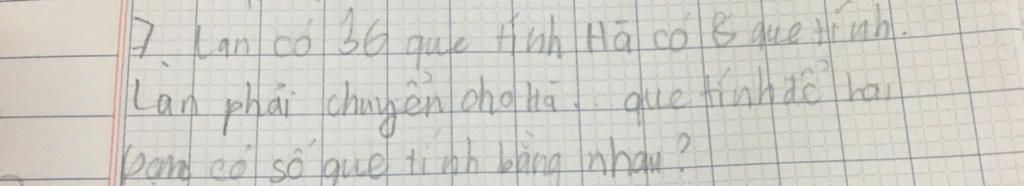 7. Lan có 36 que tính Hà có 8 que tính.
Lan phải chuyển cho Hà .. que tính để hai
bạn có số que tính bằng nhau?